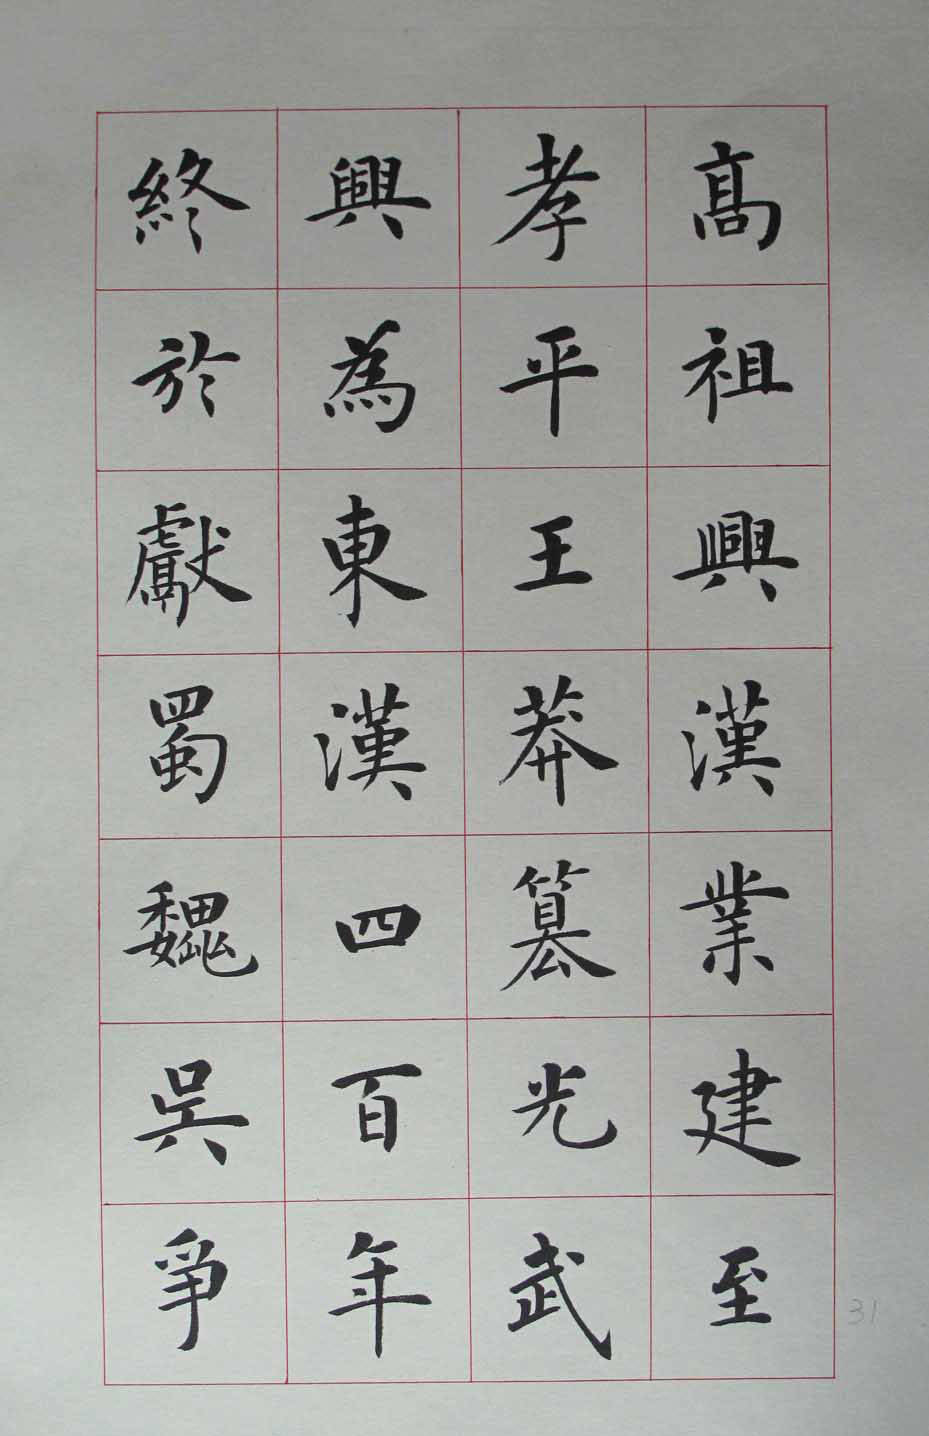 高祖興漢業建至
孝平王莽篡光武
興為東漢四百年
終於獻蜀魏吳爭
31